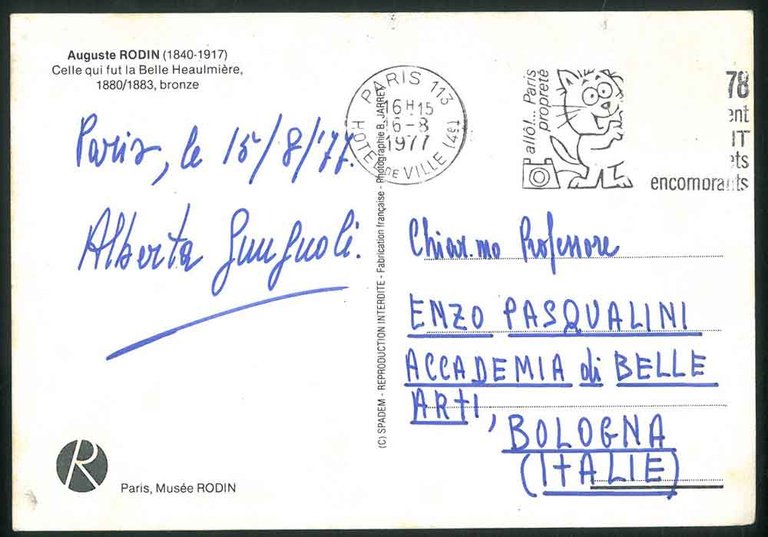 Auguste RODIN (1840-1917)
Celle qui fut la Belle Heaulmière,
1880/1883, bronze
Paris, le 15/8/'77.
Alberta
R
Paris, Musée RODIN
(C) SPADEM - REPRODUCTION INTERDITE - Fabrication française - Photographie B. JARRET
PARIS 113
16H15
6-8
1977
HOTEL DE VILLE (4e)
allô!... Paris
propreté
78
ent
IT
ets
encombrants
Chiar.mo Professore
ENZO PASQUALINI
ACCADEMIA di BELLE
ARTI,
BOLOGNA
(ITALIE)